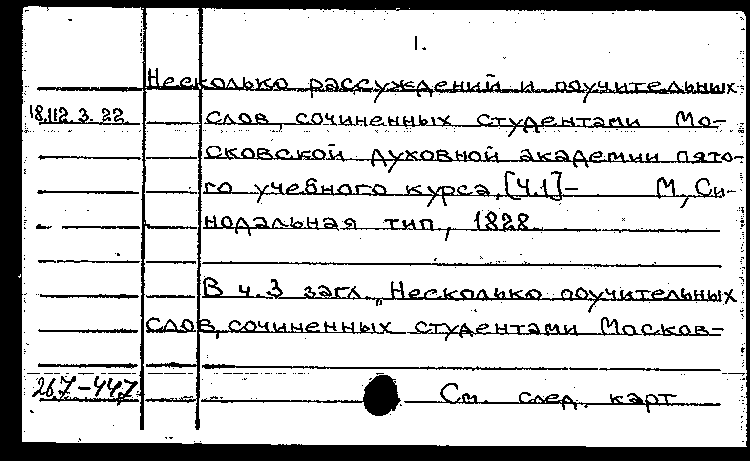 1.
Несколько рассуждений и поучительных
18.112.3.22. слов, сочиненных студентами Мо-
сковской духовной академии пято-
го учебного курса. [Ч.1] – М, Си-
нодальная тип, 1828.
В ч.3 загл. „Несколько поучительных
слов, сочиненных студентами Москов-
267-447 См. след. карт